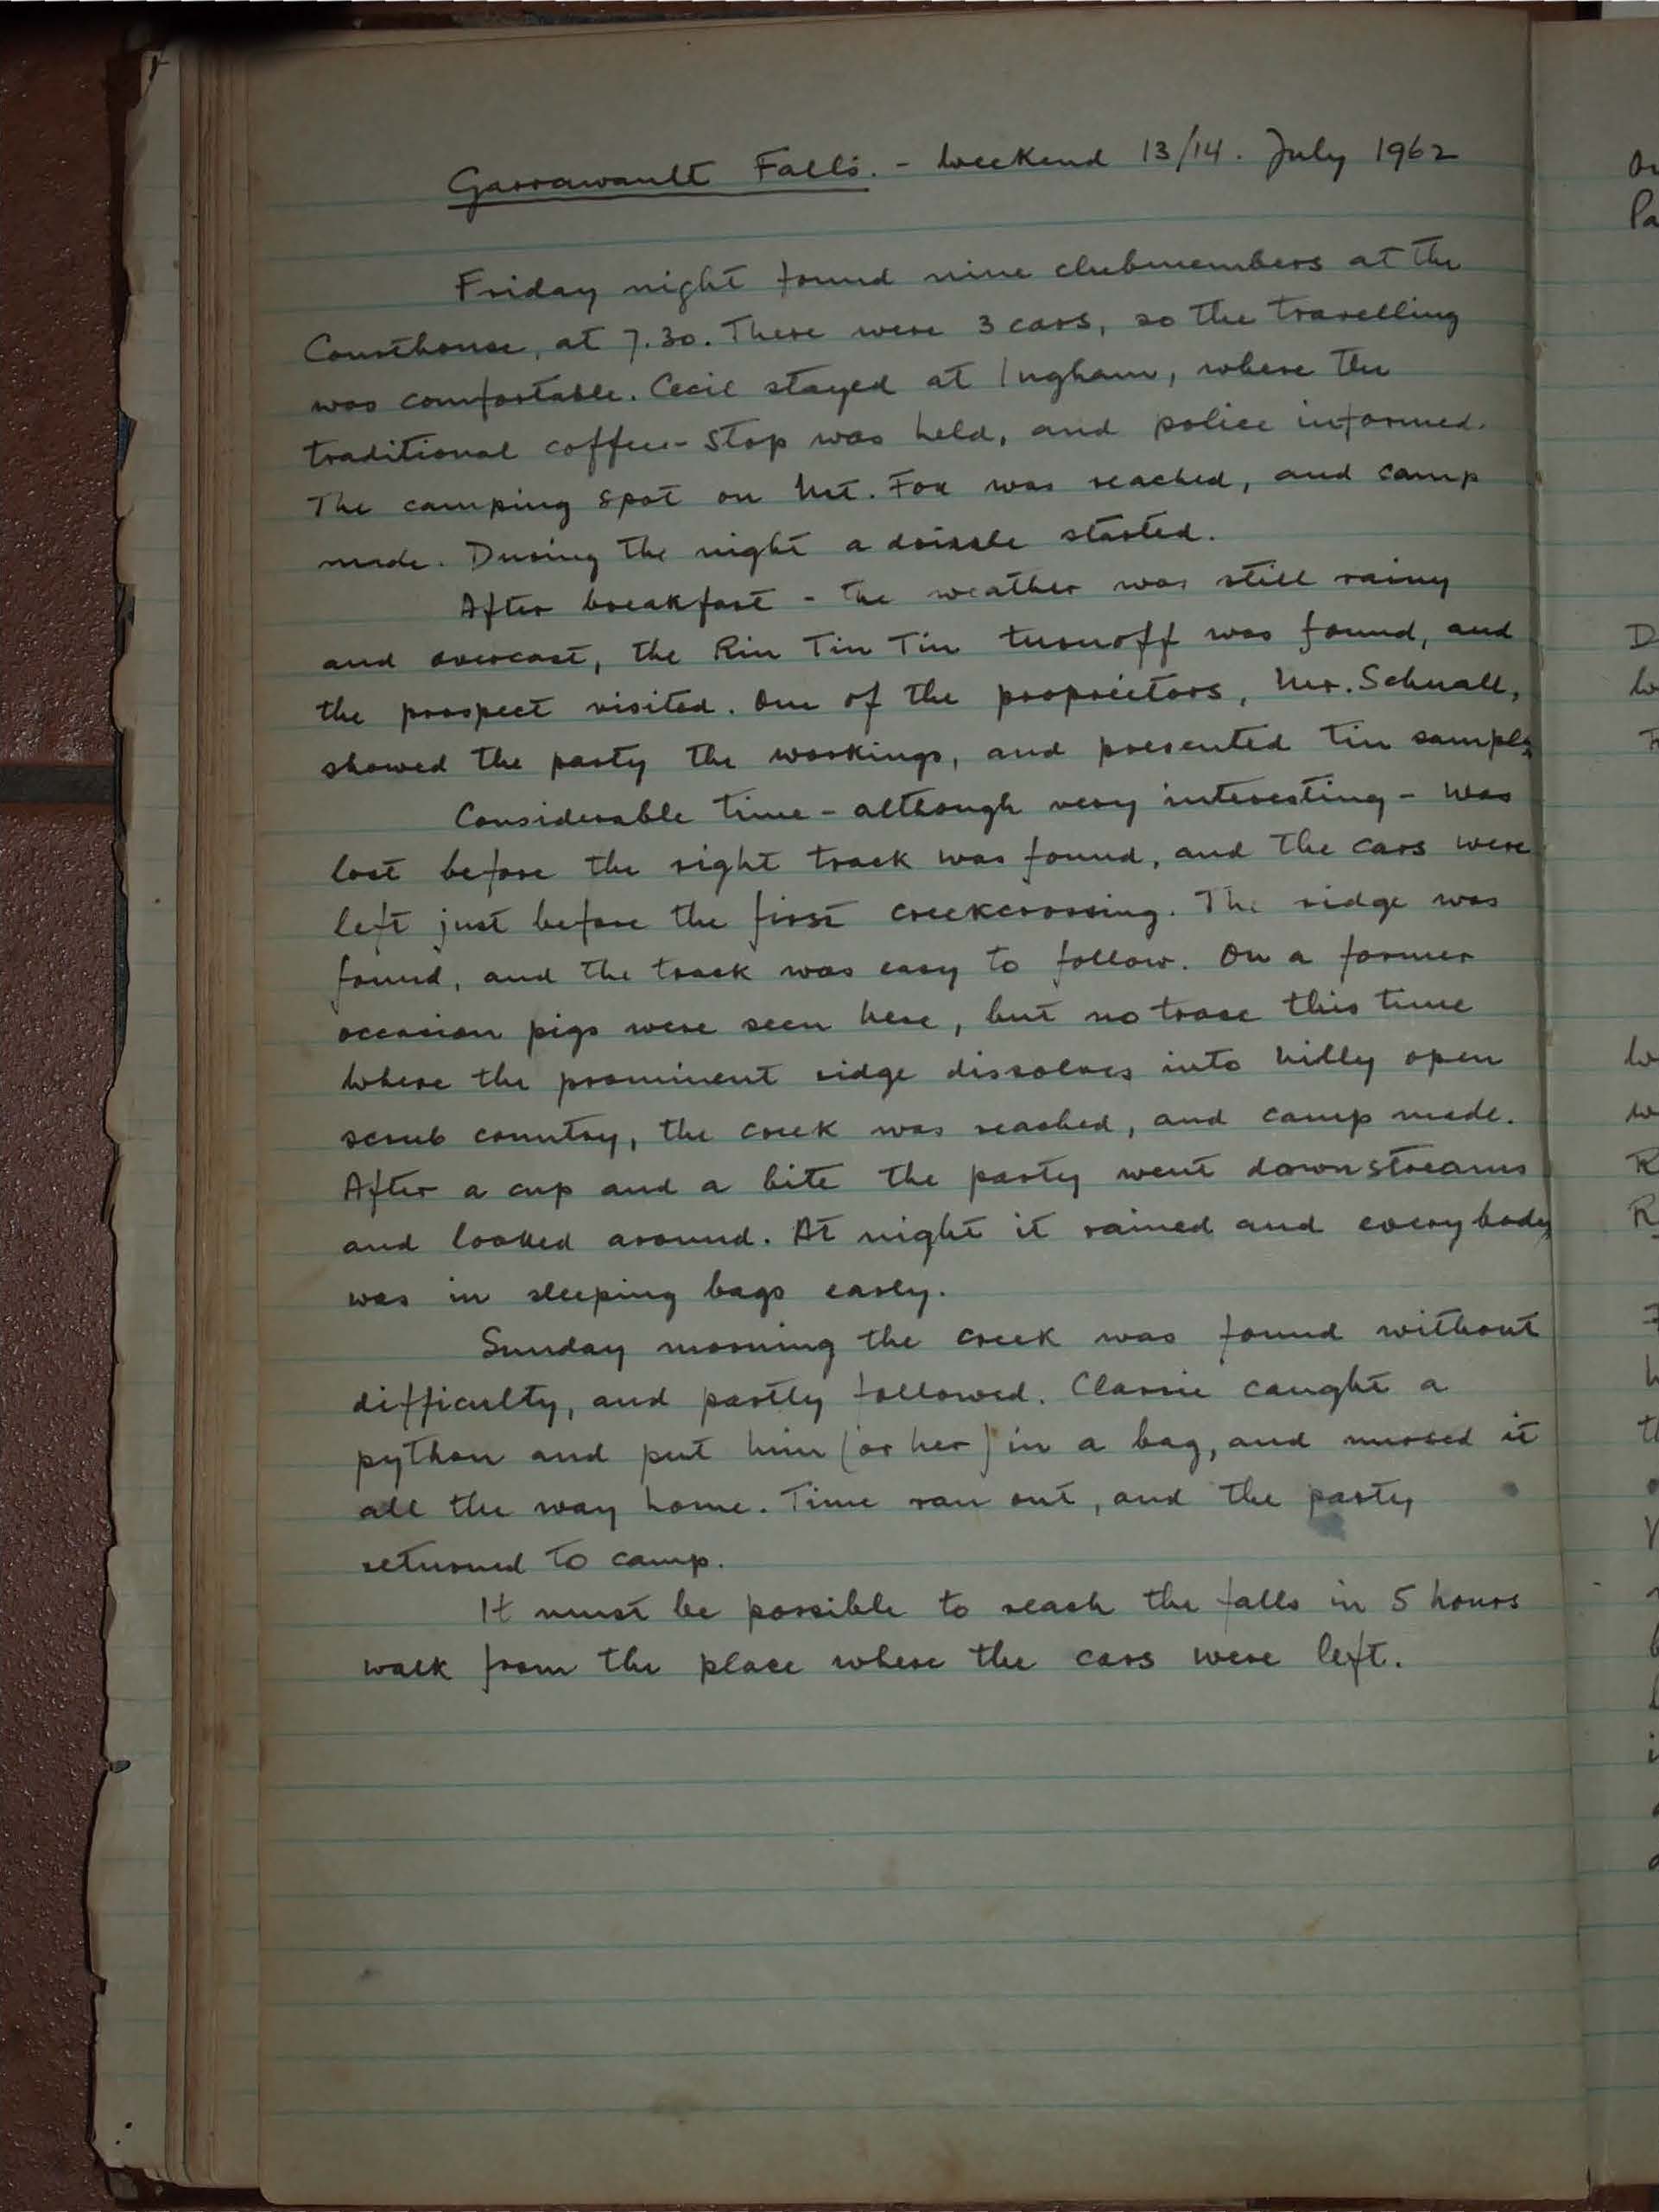 Garrawault Falls. - Weekend 13/14. July 1962
Friday night found nine clubmembers at the
Courthouse, at 7.30. There were 3 cars, so the travelling
was comfortable. Cecil stayed at Ingham, where the
traditional coffee-stop was held, and police informed.
The camping spot on Mt. Fox was reached, and camp
made. During the night a drizzle started.
After breakfast - the weather was still rainy
and overcast, the Rin Tin Tin turnoff was found, and
the prospect visited. One of the proprietors, Mr. Schnall,
showed the party the workings, and presented tin samples
Considerable time - although very interesting - was
lost before the right track was found, and the cars were
left just before the first creekcrossing. The ridge was
found, and the track was easy to follow. On a former
occasion pigs were seen here, but no trace this time
Where the prominent ridge dissolves into hilly open
scrub country, the creek was reached, and camp made.
After a cup and a bite the party went downstreams
and looked around. At night it rained and everybody
was in sleeping bags early.
Sunday morning the creek was found without
difficulty, and partly followed. Classie caught a
python and put him (or her) in a bag, and nursed it
all the way home. Time ran out, and the party
returned to camp.
It must be possible to reach the falls in 5 hours
walk from the place where the cars were left.